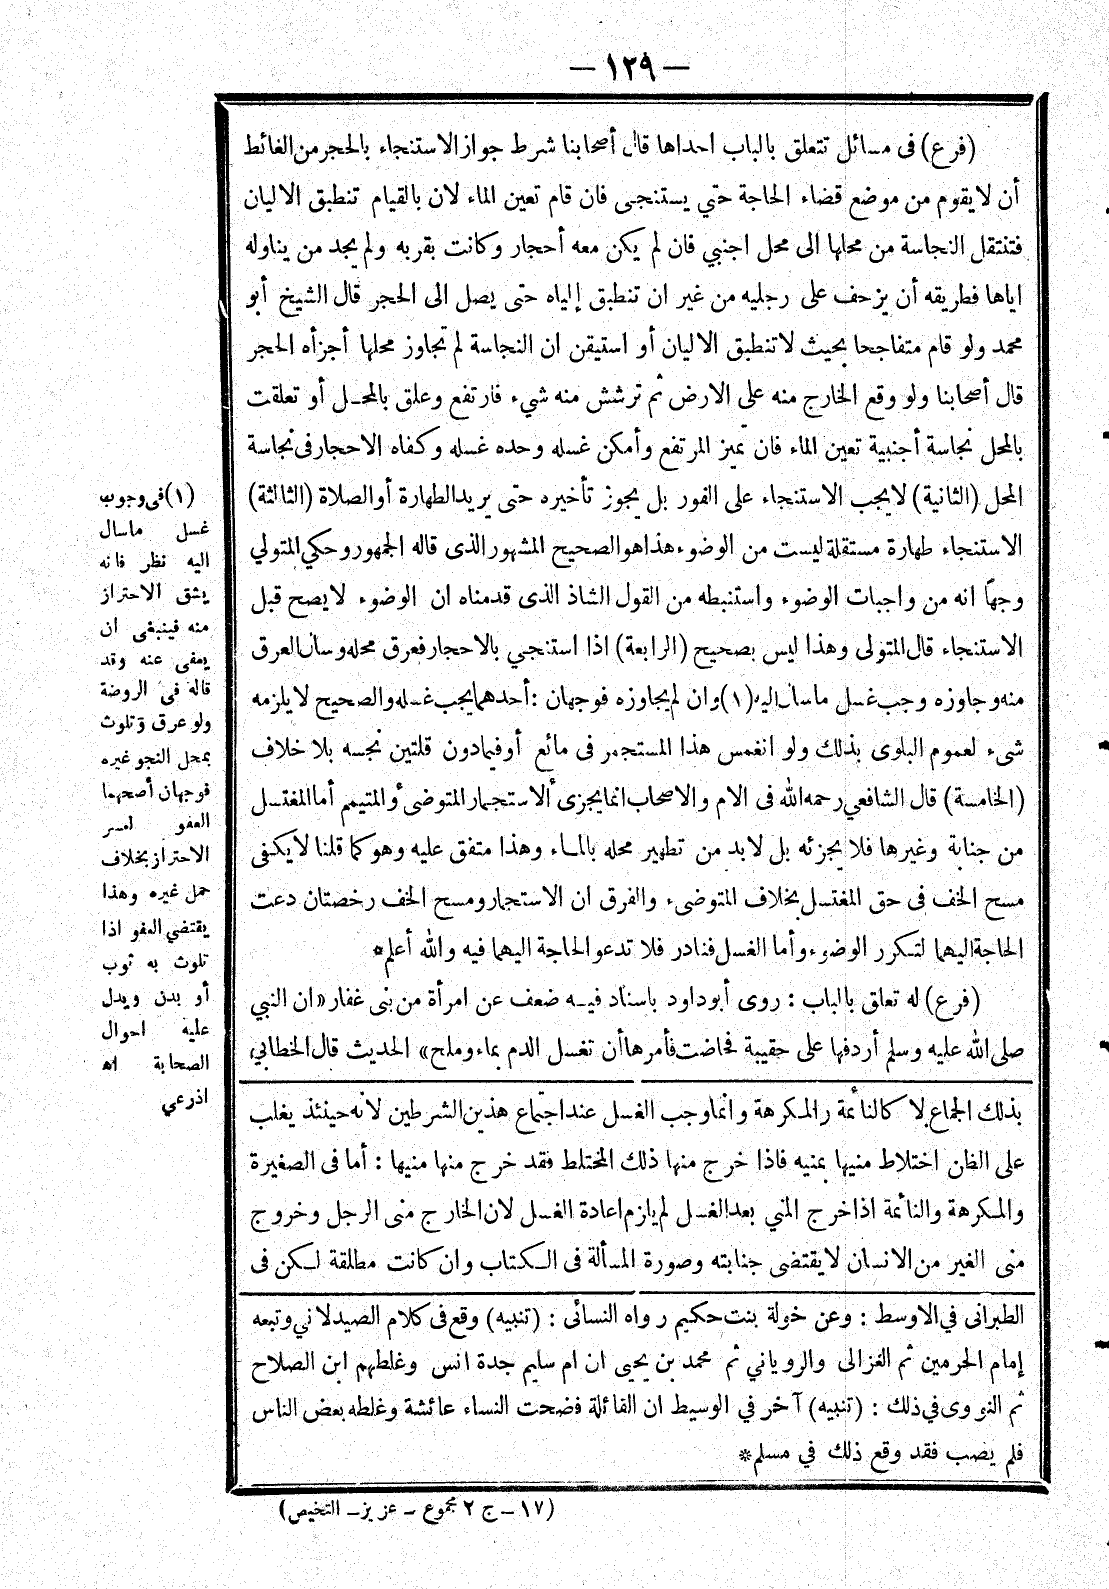 — ١٢٩ —
(فرع) فى مسائل تتعلق بالباب احداها قال أصحابنا شرط جواز الاستنجاء بالحجر من الغائط
أن لا يقوم من موضع قضاء الحاجة حتي يستنجى فان قام تعين الماء لان بالقيام تنطبق الاليان
فتنتقل النجاسة من محلها الى محل اجنبي فان لم يكن معه أحجار وكانت بقربه ولم يجد من يناوله
اياها فطريقه أن يزحف على رجليه من غير ان تنطبق إلياه حتى يصل الى الحجر قال الشيخ أبو
محمد ولو قام متفاجحا بحيث لا تنطبق الاليان أو استيقن ان النجاسة لم تجاوز محلها أجزأه الحجر
قال أصحابنا ولو وقع الخارج منه على الارض ثم ترشش منه شيء فارتفع وعلق بالمحل أو تعلقت
بالمحل نجاسة أجنبية تعين الماء فان تميز المرتفع وأمكن غسله وحده غسله وكفاه الاحجار فى نجاسة
المحل (الثانية) لا يجب الاستنجاء على الفور بل يجوز تأخيره حتى يريد الطهارة أو الصلاة (الثالثة)
الاستنجاء طهارة مستقلة ليست من الوضوء هذا هو الصحيح المشهور الذى قاله الجمهور وحكي المتولي
وجهاً انه من واجبات الوضوء واستنبطه من القول الشاذ الذى قدمناه ان الوضوء لا يصح قبل
الاستنجاء قال المتولى وهذا ليس بصحيح (الرابعة) اذا استنجي بالاحجار فعرق محله وسال العرق
منه وجاوزه وجب غسل ما سال اليه (١) وان لم يجاوزه فوجهان : أحدهما يجب غسله والصحيح لا يلزمه
شىء لعموم البلوى بذلك ولو انغمس هذا المستجمر فى مائع أو فيما دون قلتين نجسه بلا خلاف
(الخامسة) قال الشافعي رحمه الله فى الام والاصحاب انما يجزى ألاستجمار المتوضى ٔ والمتيمم أما المغتسل
من جنابة وغيرها فلا يجزئه بل لا بد من تطهير محله بالماء وهذا متفق عليه وهو كما قلنا لا يكفى
مسح الخف فى حق المغتسل بخلاف المتوضىء والفرق ان الاستجمار ومسح الخف رخصتان دعت
الحاجة اليهما لتكرر الوضوء وأما الغسل فنادر فلا تدعو الحاجة اليهما فيه والله أعلم*
(فرع) له تعلق بالباب : روى أبو داود باسناد فيه ضعف عن امرأة من بنى غفار «ان النبي
صلى الله عليه وسلم أردفها على حقيبة فحاضت فأمرها أن تغسل الدم بماء وملح» الحديث قال الخطابي؛
(١) فى وجوب
غسل ماسال
اليه نظر فانه
يشق الاحتراز
منه فينبغى ان
يعفى عنه وقد
قاله فى الروضة
ولو عرق وتلوث
بمحل النجو غيره
فوجهان أصحهما
العفو لعسر
الاحتراز بخلاف
حمل غيره وهذا
يقتضي العفو اذا
تلوث به ثوب
أو بدن ويدل
عليه احوال
الصحابة اه
اذرعي
بذلك الجماع بلا كالنائمة والمكرهة وانما وجب الغسل عند اجتماع هذين الشرطين لانه حينئذ يغلب
على الظن اختلاط منيها بمنيه فاذا خرج منها ذلك المختلط فقد خرج منها منيها : أما فى الصغيرة
والمكرهة والنائمة اذا خرج المني بعد الغسل لم يلزم اعادة الغسل لان الخارج منى الرجل وخروج
منى الغير من الانسان لا يقتضى جنابته وصورة المسألة فى الكتاب وان كانت مطلقة لكن فى
الطبرانى في الاوسط : وعن خولة بنت حكيم رواه النسائى : (تنبيه) وقع فى كلام الصيدلاني وتبعه
إمام الحرمين ثم الغزالى والروياني ثم محمد بن يحيى ان ام سليم جدة انس وغلطهم ابن الصلاح
ثم النووى في ذلك : (تنبيه) آخر في الوسيط ان القائلة فضحت النساء عائشة وغلطه بعض الناس
فلم يصب فقد وقع ذلك في مسلم*
(١٧ – ج ٢ مجموع – عزيز – التخيص)